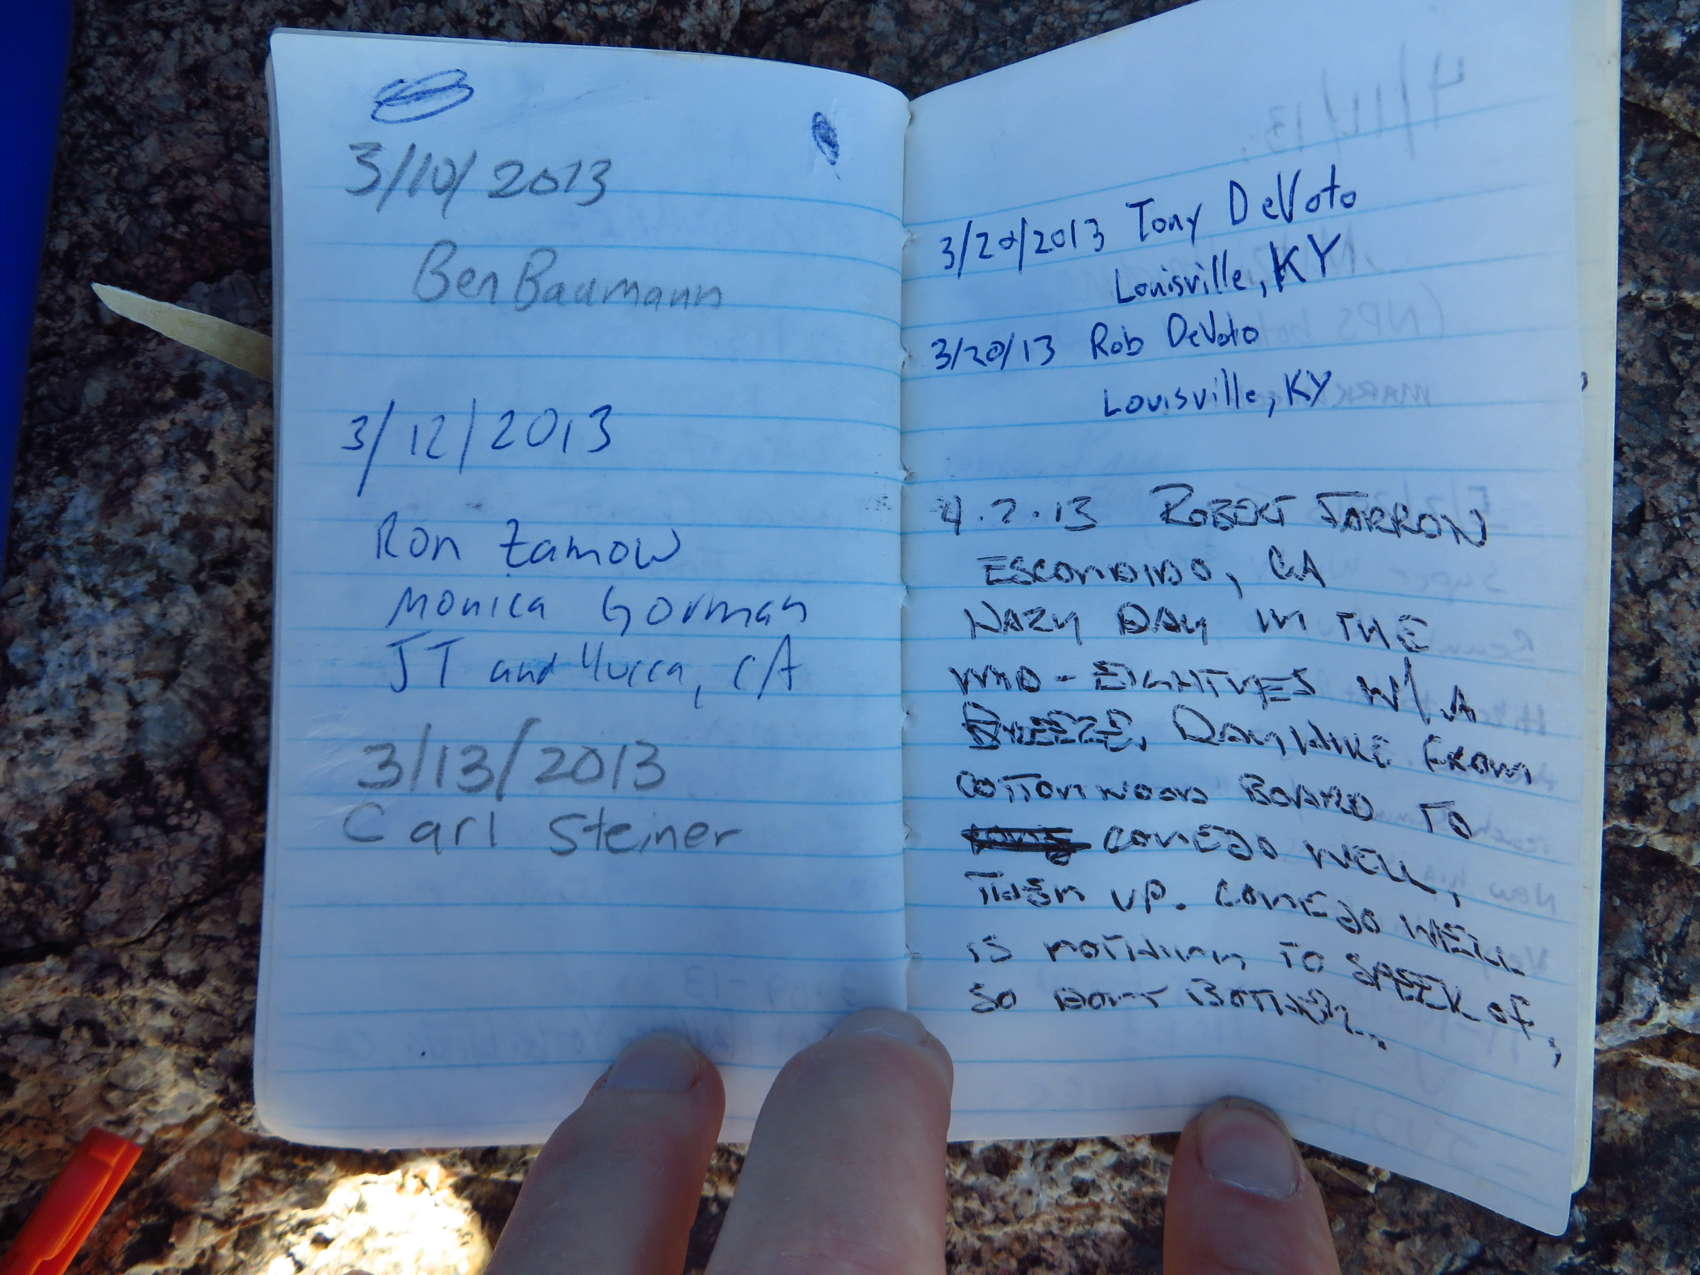 3/10/2013
Ben Baumann
3/12/2013
Ron Zamow
Monica Gorman
JT and Yucca, CA
3/13/2013
Carl Steiner
3/20/2013 Tony DeVoto
Louisville, KY
3/20/13 Rob DeVoto
Louisville, KY
4.2.13 ROBERT JARRON
ESCONDIDO, CA
HAZY DAY IN THE
MID-EIGHTIES W/A
BREEZE. DAYHIKE FROM
COTTONWOOD BOARD TO
CONEJO WELL,
THEN UP. CONEJO WELL
IS NOTHING TO SPEEK OF,
SO DON'T BOTHER...